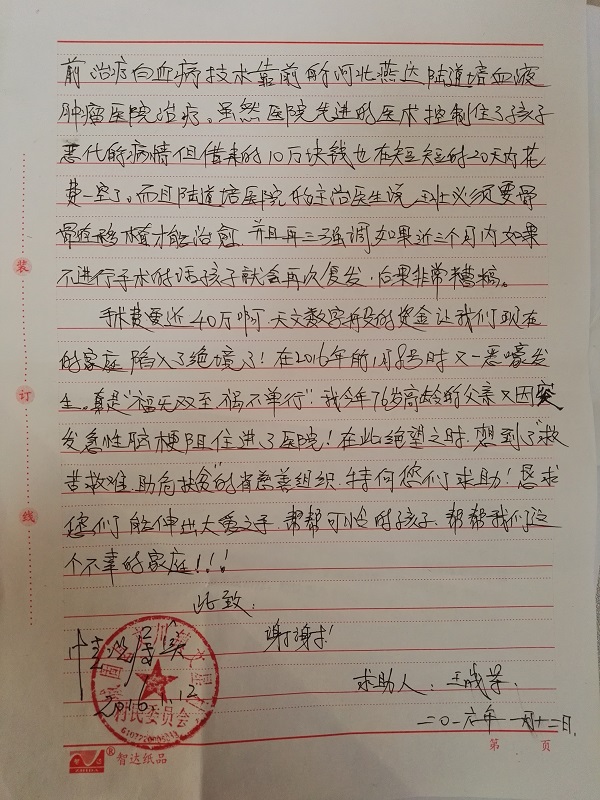 前治疗白血病技术靠前的河北燕达陆道培血液
肿瘤医院治疗。虽然医院先进的医术控制住了孩子
恶化的病情但借来的10万块钱也在短短的20天内花
费一空了。而且陆道培医院的主治医生说 王壮必须要骨
骨髓移植才能治愈,并且再三强调如果近三个月内如果
不进行手术的话孩子就会再次复发,后果非常糟糕。
手术费要近40万啊.天文数字般的资金让我们现在
的家庭陷入了绝境了!在2016年的1月8号时又一恶噩发
生。真是“福无双至,祸不单行”.我今年76岁高龄的父亲又因突
发急性脑梗阻住进了医院!在此绝望之时.想到了“救
苦救难.助危扶贫”的省慈善组织.特向您们求助!恳求
您们能伸出大爱之手.帮帮可怜的孩子.帮帮我们这
个不幸的家庭!!!
此致:
谢谢!
情况属实
2016.1.12
村民委员会
求助人:王成
二〇一六年一月十二日.
装
订
线
第 页
® 智达纸品